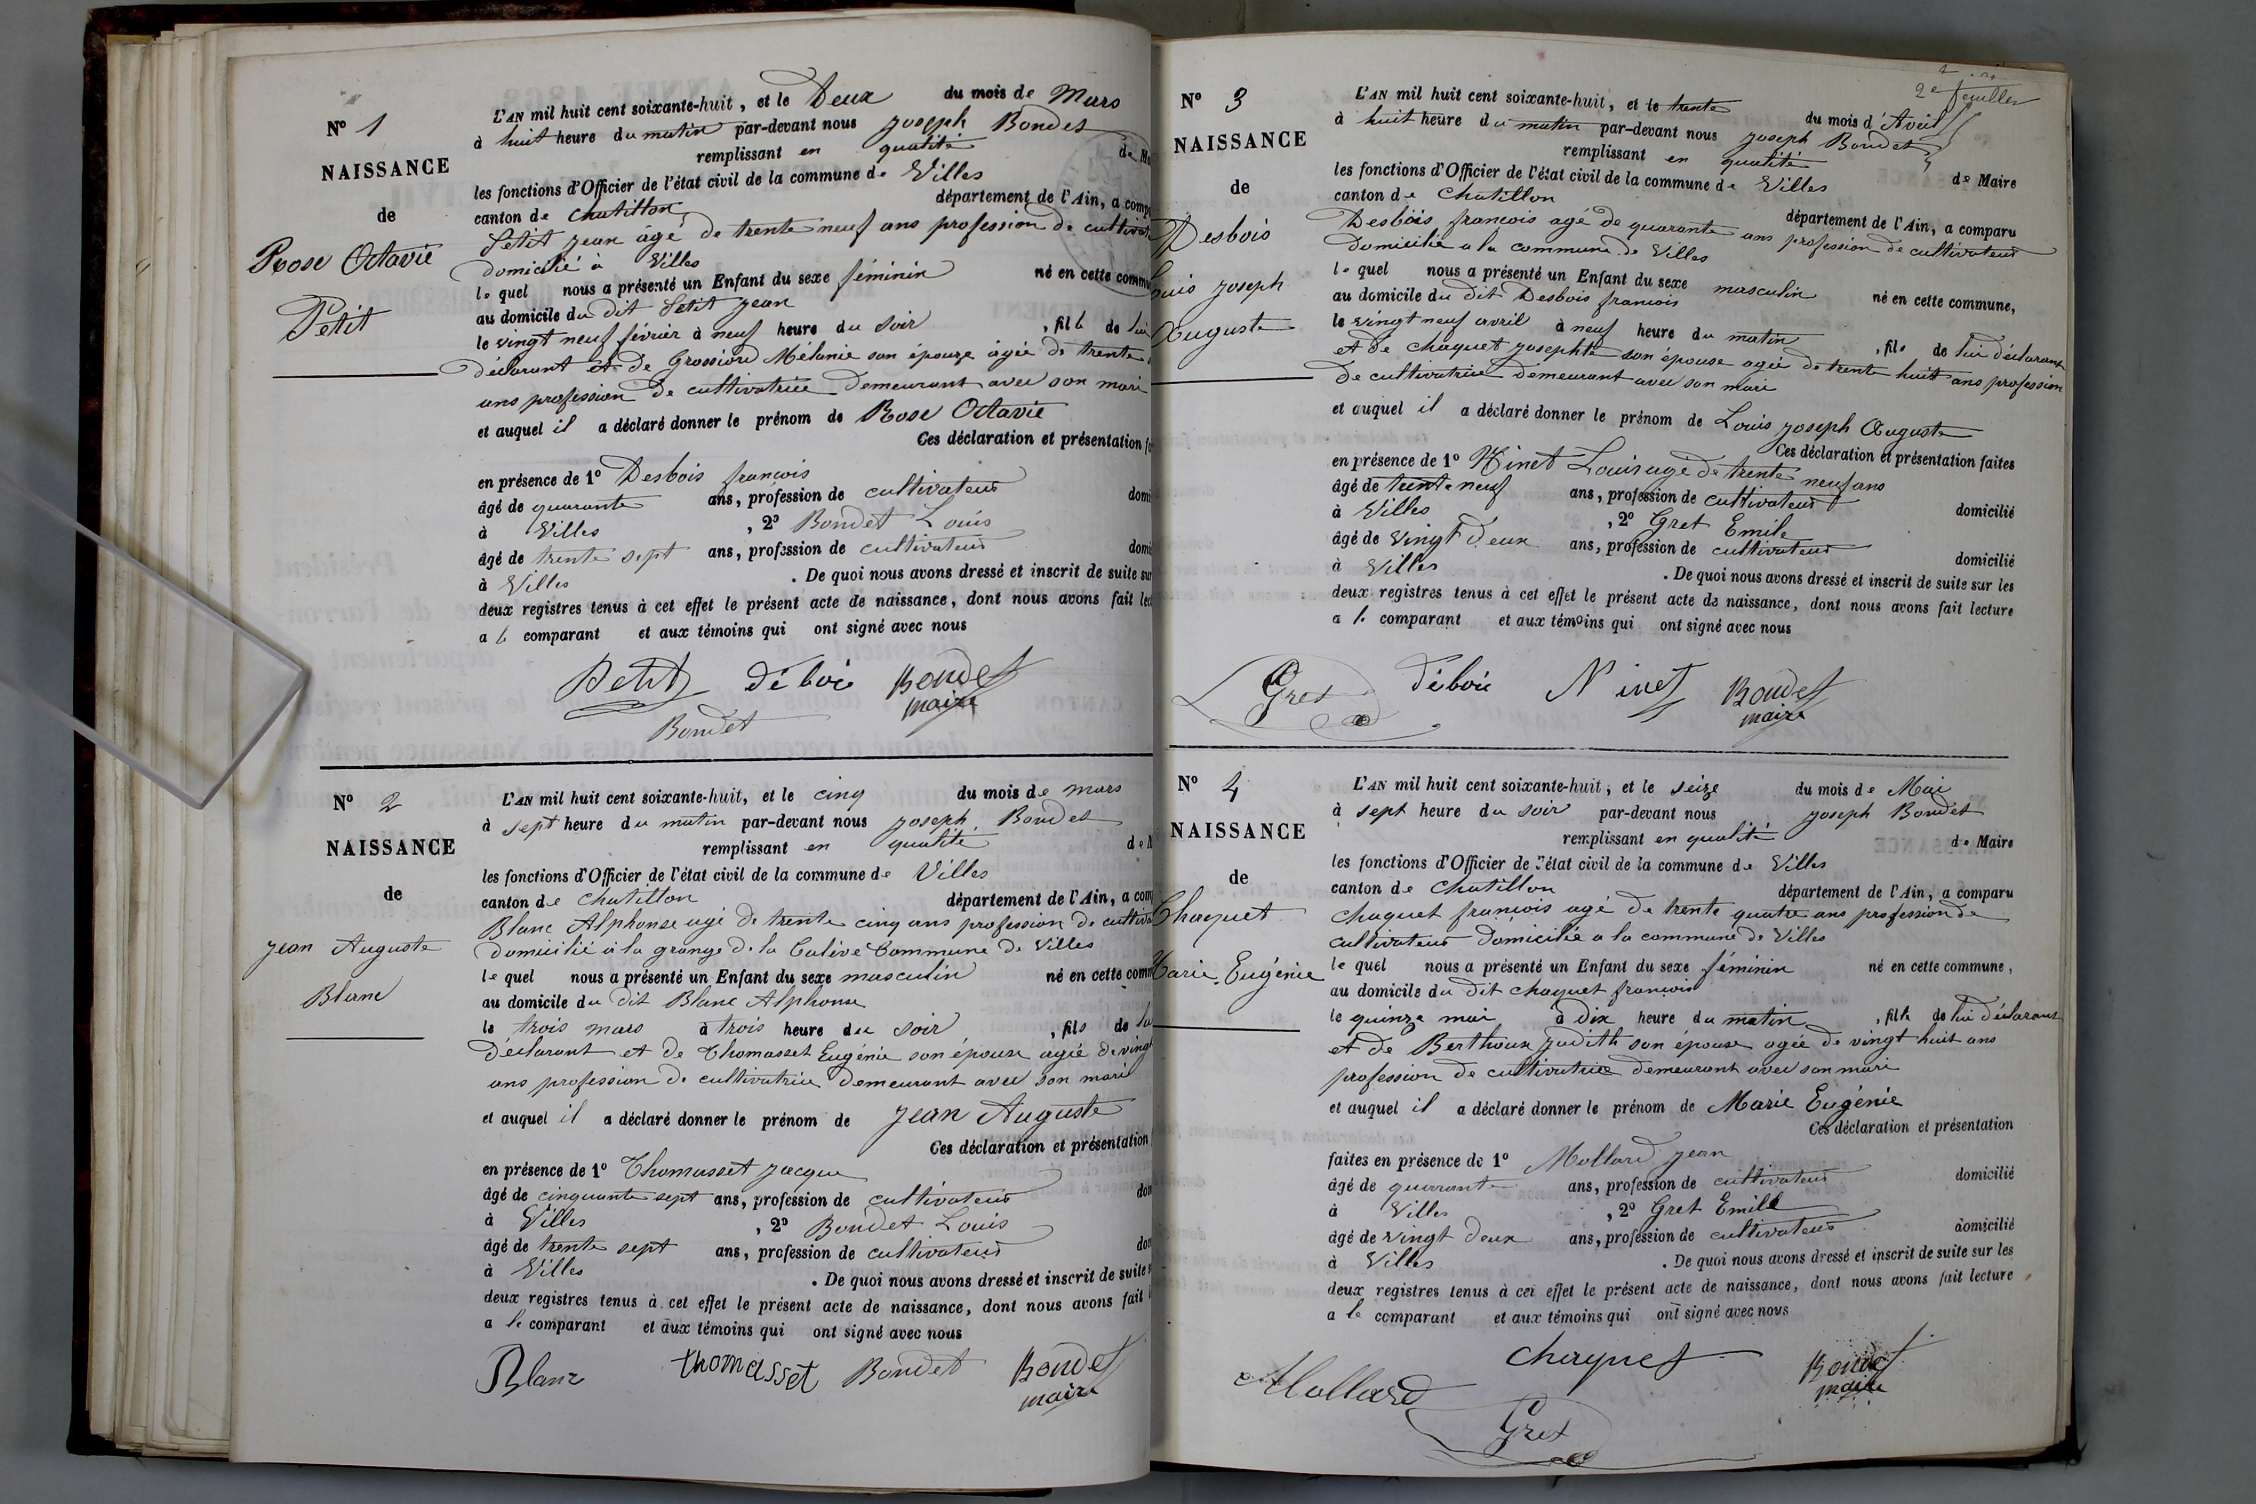 N° 1
NAISSANCE
de
Rose Octavie
Petit
L'AN mil huit cent soixante-huit, et le Deux du mois de Mars
à huit heure du matin par-devant nous joseph Bondet
remplissant en qualité de
les fonctions d'Officier de l'état civil de la commune de Villes
canton de chatillon département de l'Ain, a
Petit jean âgé de trente neuf ans profession de
domicilié à Villes
le quel nous a présenté un Enfant du sexe féminin né en cette
au domicile du dit Petit jean
le vingt neuf février à neuf heure du soir , fille de lui
déclarant et de Mélanie son épouse âgée de trente
ans profession de cultivatrice demeurant avec son mari
et auquel il a déclaré donner le prénom de Rose Octavie
Ces déclaration et présentation
en présence de 1° Desbois francois
âgé de quarante ans, profession de cultivateur
à Villes , 2° Bondet Louis
âgé de trente sept ans, profession de cultivateur
à Villes . De quoi nous avons dressé et inscrit de suite sur
deux registres tenus à cet effet le présent acte de naissance, dont nous avons fait
a le comparant et aux témoins qui ont signé avec nous
Petit déboie Bondet
maire
Bondet
N° 2
NAISSANCE
de
jean Auguste
Blanc
L'AN mil huit cent soixante-huit, et le cinq du mois de mars
à sept heure du matin par-devant nous joseph Bondet
remplissant en qualité de
les fonctions d'Officier de l'état civil de la commune de Villes
canton de chatillon département de l'Ain, a
Blanc Alphonse agé de trente cinq ans profession de
domicilié à la grange de la Commune de Villes
le quel nous a présenté un Enfant du sexe masculin né en cette
au domicile du dit Blanc Alphonse
le trois mars à trois heure du soir , fils de
déclarant et de Thomasset Eugénie son épouse agée de vingt
ans profession de cultivatrice demeurant avec son mari
et auquel il a déclaré donner le prénom de jean Auguste
Ces déclaration et présentation
en présence de 1° Thomasset jacque
âgé de cinquante sept ans, profession de cultivateur
à Villes , 2° Bondet Louis
âgé de trente sept ans, profession de cultivateur
à Villes . De quoi nous avons dressé et inscrit de suite
deux registres tenus à cet effet le présent acte de naissance, dont nous avons fait
a le comparant et aux témoins qui ont signé avec nous
Blanc thomasset Bondet Bondet
maire
2e feuillet
N° 3
NAISSANCE
de
Desbois
Louis joseph
Auguste
L'AN mil huit cent soixante-huit, et le trente du mois d'Avril
à huit heure du matin par-devant nous joseph Bondet
remplissant en qualité de Maire
les fonctions d'Officier de l'état civil de la commune de Villes
canton de chatillon département de l'Ain, a comparu
Desbois francois agé de quarante ans profession de cultivateur
domicilié a la commune de Villes
le quel nous a présenté un Enfant du sexe masculin né en cette commune,
au domicile du dit Desbois francois
le vingt neuf avril à neuf heure du matin , fils de lui déclarant
et de chaquet josephte son épouse agée de trente huit ans profession
de cultivatrice demeurant avec son mari
et auquel il a déclaré donner le prénom de Louis joseph Auguste
Ces déclaration et présentation faites
en présence de 1° Ninet Louis agé de trente neuf ans
âgé de trente neuf ans, profession de cultivateur domicilié
à Villes , 2° Gret Emile
âgé de vingt deux ans, profession de cultivateur domicilié
à Villes . De quoi nous avons dressé et inscrit de suite sur les
deux registres tenus à cet effet le présent acte de naissance, dont nous avons fait lecture
a le comparant et aux témoins qui ont signé avec nous
Gret déboie Ninet Bondet
maire
N° 4
NAISSANCE
de
Chaquet
Marie Eugénie
L'AN mil huit cent soixante-huit, et le seize du mois de Mai
à sept heure du soir par-devant nous joseph Bondet
remplissant en qualité de Maire
les fonctions d'Officier de l'état civil de la commune de Villes
canton de chatillon département de l'Ain, a comparu
chaquet françois agé de trente quatre ans profession de
cultivateur domicilié a la commune de Villes
le quel nous a présenté un Enfant du sexe féminin né en cette commune,
au domicile du dit chaquet françois
le quinze mai à dix heure du matin , fille de lui déclarant
et de Berthoux judith son épouse agée de vingt huit ans
profession de cultivatrice demeurant avec son mari
et auquel il a déclaré donner le prénom de Marie Eugénie
Ces déclaration et présentation
faites en présence de 1° Mollard jean
âgé de quarante ans, profession de cultivateur domicilié
à Villes , 2° Gret Emile
âgé de vingt deux ans, profession de cultivateur domicilié
à Villes . De quoi nous avons dressé et inscrit de suite sur les
deux registres tenus à cet effet le présent acte de naissance, dont nous avons fait lecture
a le comparant et aux témoins qui ont signé avec nous
Mollard chaquet Bondet
maire
Gret